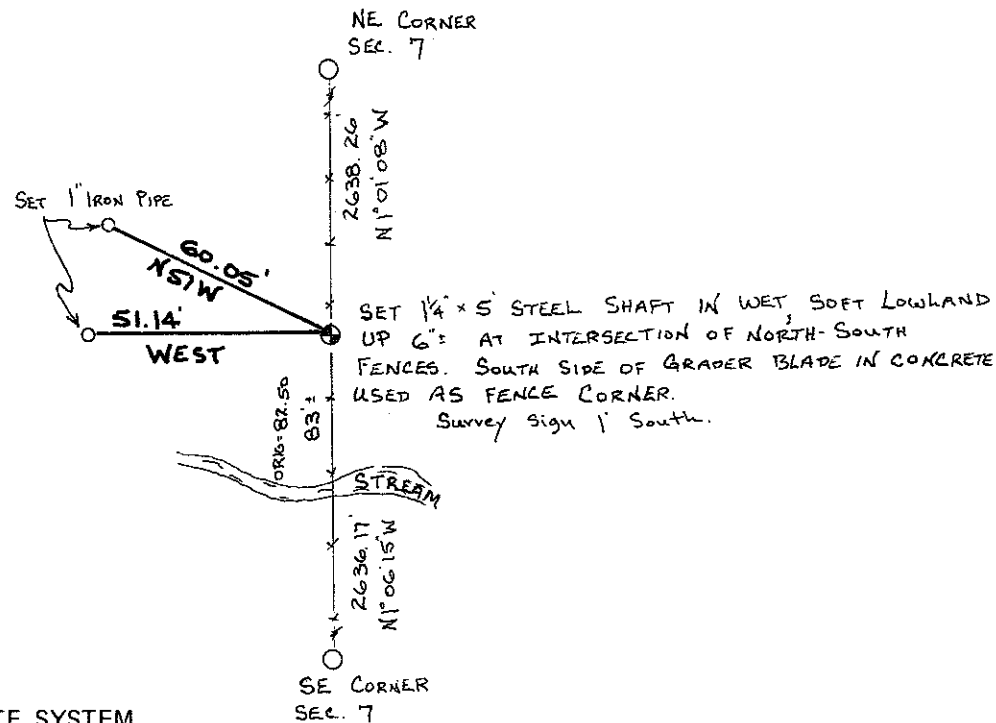 NE CORNER
SEC. 7
2638.26'
N1°01'08"W
SET 1" IRON PIPE
60.05'
N57W
51.14'
WEST
SET 1¼" × 5' STEEL SHAFT IN WET, SOFT LOWLAND
UP 6"± AT INTERSECTION OF NORTH-SOUTH
FENCES. SOUTH SIDE OF GRADER BLADE IN CONCRETE
USED AS FENCE CORNER.
Survey Sign 1' South.
ORIG=82.50
83'±
STREAM
2636.17'
N1°06'15"W
SE CORNER
SEC. 7
TE SYSTEM